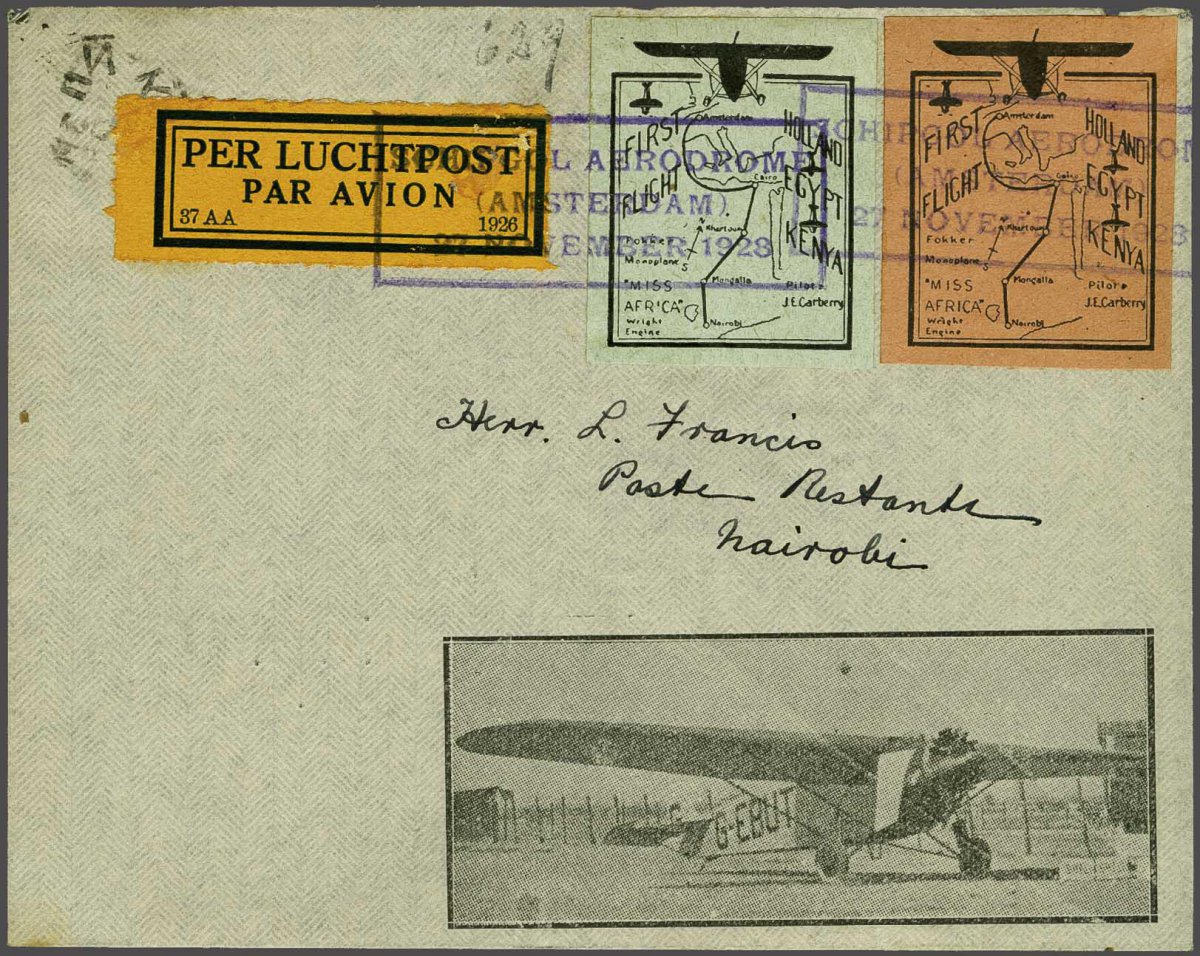 629
PER LUCHTPOST
PAR AVION
37 AA 1926
SCHIPOOL AERODROME
(AMSTERDAM)
27 NOVEMBER 1928
FIRST
FLIGHT
HOLLAND
EGYPT
KENYA
Amsterdam
Cairo
Khartoum
Mongalla
Nairobi
Fokker
Monoplane
"MISS
AFRICA"
Wright
Engine
Pilot
J.E.Carberry
FIRST
FLIGHT
HOLLAND
EGYPT
KENYA
Amsterdam
Cairo
Khartoum
Mongalla
Nairobi
Fokker
Monoplane
"MISS
AFRICA"
Wright
Engine
Pilot
J.E.Carberry
27 NOVEMBER 1928
Herr. L. Francis
Poste Restante
Nairobi
G-EBUT